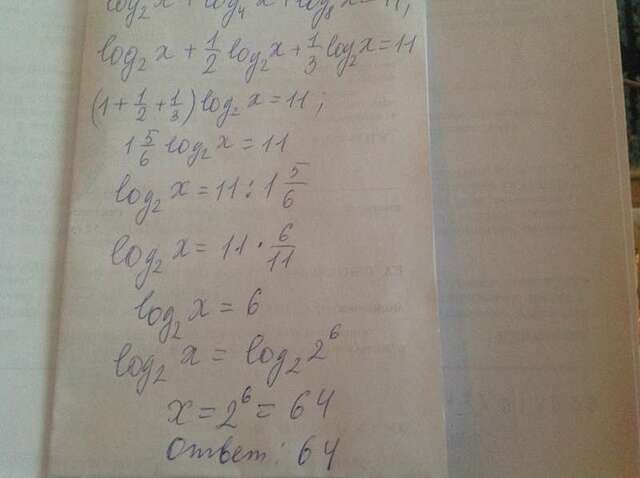 log₂ x + log₄ x + log₈ x = 11;
log₂ x + 1/2 log₂ x + 1/3 log₂ x = 11
(1 + 1/2 + 1/3) log₂ x = 11;
1 5/6 log₂ x = 11
log₂ x = 11 : 1 5/6
log₂ x = 11 · 6/11
log₂ x = 6
log₂ x = log₂ 2⁶
x = 2⁶ = 64
Ответ: 64